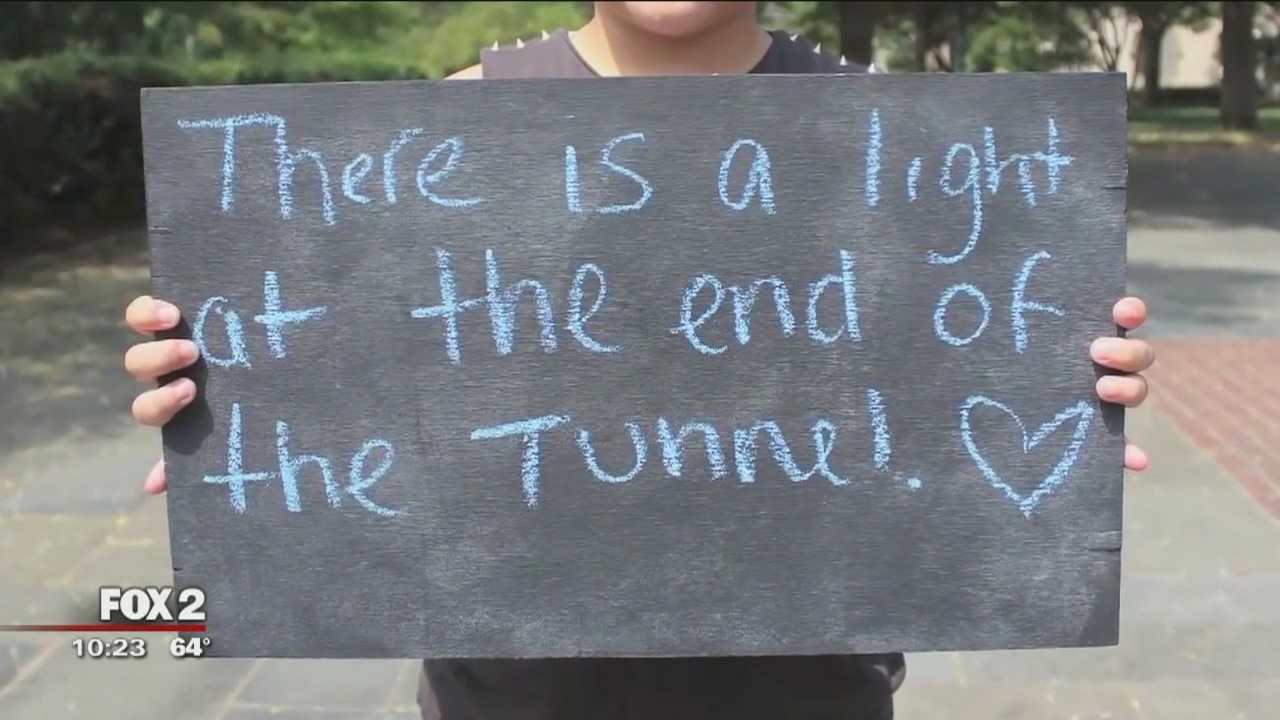 There is a light
at the end of
the Tunnel. ♡
FOX 2
10:23 64°